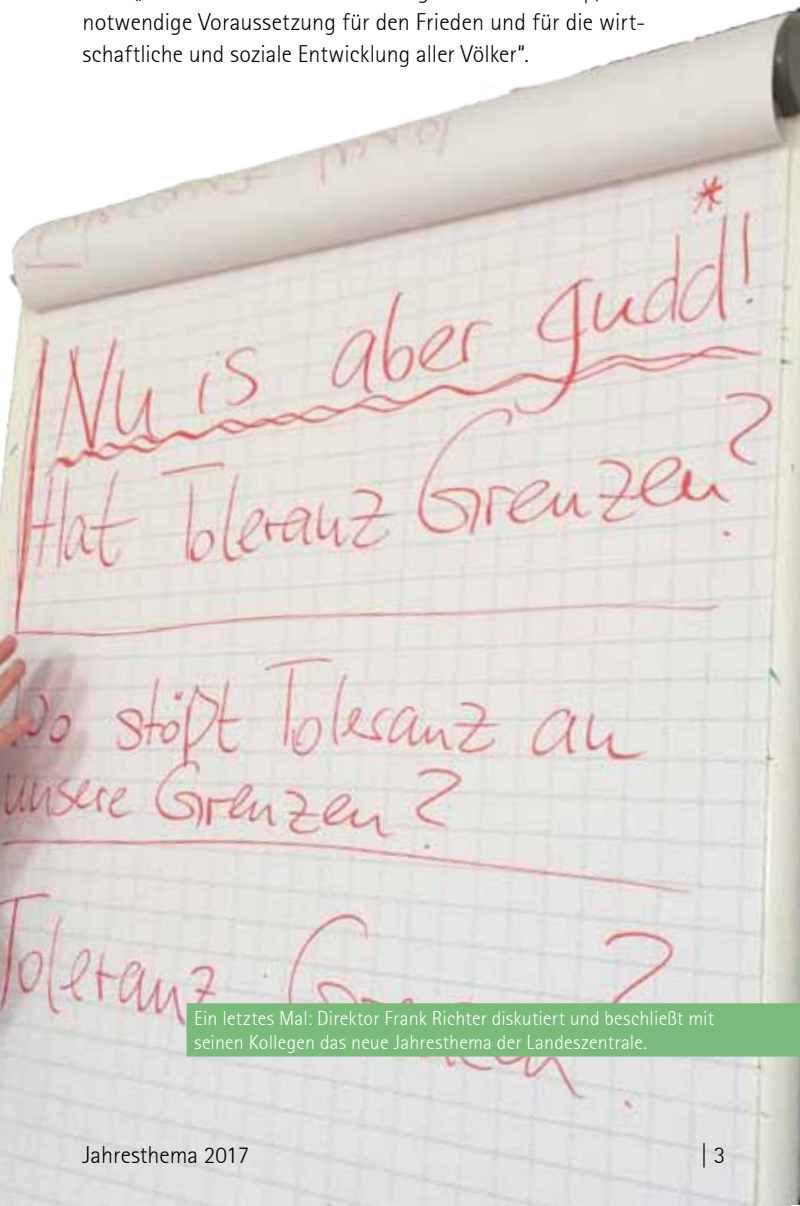 notwendige Voraussetzung für den Frieden und für die wirt-
schaftliche und soziale Entwicklung aller Völker“.
*
Nu is aber gudd!
Hat Toleranz Grenzen?
Wo stößt Toleranz an
unsere Grenzen?
Toleranz
?
Ein letztes Mal: Direktor Frank Richter diskutiert und beschließt mit
seinen Kollegen das neue Jahresthema der Landeszentrale.
Jahresthema 2017 | 3